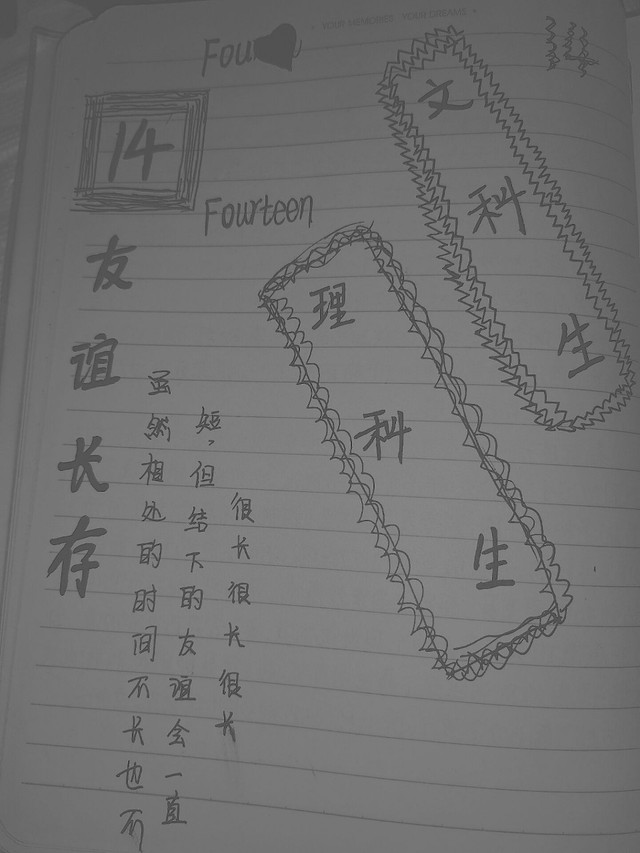 YOUR MEMORIES YOUR DREAMS
Fou
14
14
Fourteen
文科生
理科生
友谊长存
虽然相处的时间不长也不
短,但结下的友谊会一直
很长很长很长